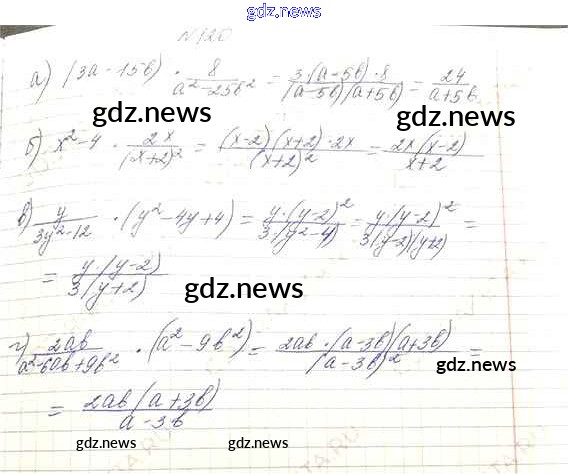 gdz.news
N120
а) (3a-15b) · 8/(a²-25b²) = 3·(a-5b)·8/((a-5b)(a+5b)) = 24/(a+5b).
gdz.news gdz.news
б) x²-4 · 2x/(x+2)² = (x-2)(x+2)·2x/(x+2)² = 2x(x-2)/(x+2)
в) y/(3y²-12) · (y²-4y+4) = y·(y-2)²/(3·(y²-4)) = y·(y-2)²/(3(y-2)(y+2)) =
= y(y-2)/(3(y+2))
gdz.news
г) 2ab/(a²-6ab+9b²) · (a²-9b²) = 2ab·(a-3b)(a+3b)/(a-3b)² =
gdz.news
= 2ab(a+3b)/(a-3b)
gdz.news gdz.news